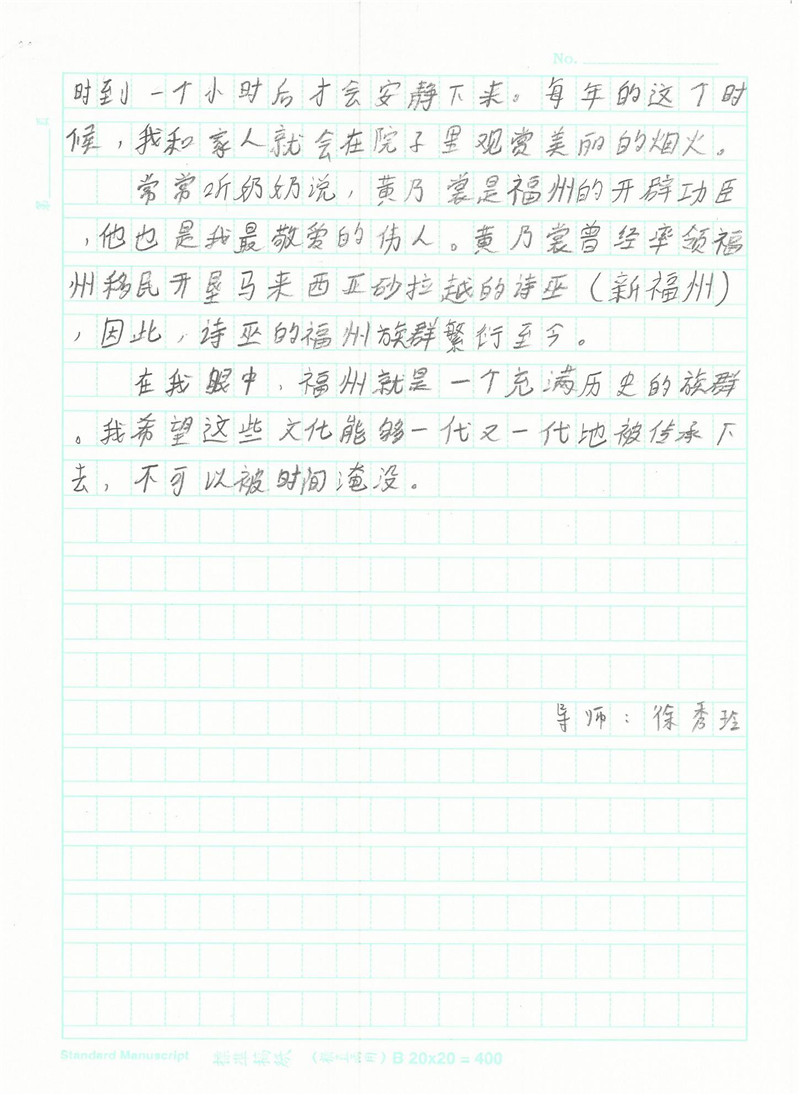 No.
时到一个小时后才会安静下来。每年的这个时
候，我和家人就会在院子里观赏美丽的烟火。
常常听奶奶说，黄乃裳是福州的开辟功臣
，他也是我最敬爱的伟人。黄乃裳曾经率领福
州移民开垦马来西亚砂拉越的诗巫（新福州）
，因此，诗巫的福州族群繁衍至今。
在我眼中，福州就是一个充满历史的族群
。我希望这些文化能够一代又一代地被传承下
去，不可以被时间淹没。
导师：徐秀玲
Standard Manuscript B 20x20 = 400